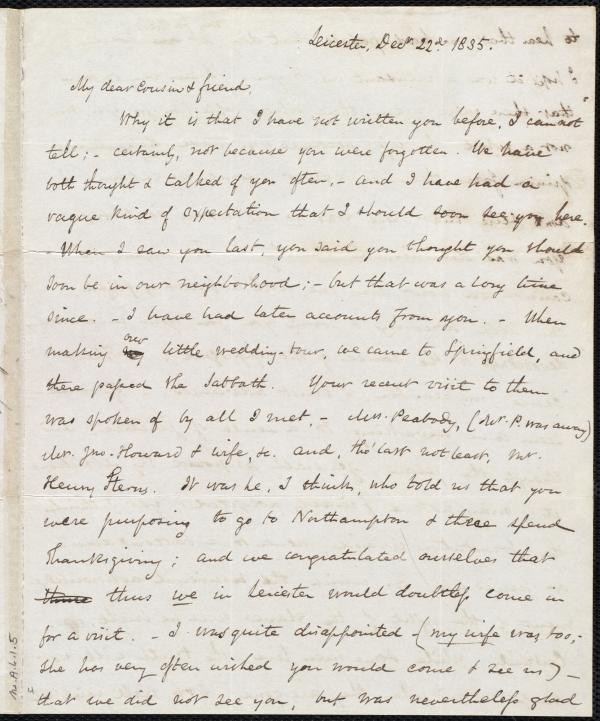 Leicester, Decr. 22d. 1835.
My dear cousin & friend,
Why it is that I have not written you before, I cannot
tell; - certainly, not because you were forgotten. We have
both thought & talked of you often, - and I have had a
vague kind of expectation that I should soon see you here.
- When I saw you last, you said you thought you should
soon be in our neighborhood; - but that was a long time
since. - I have had later accounts from you. - When
making our little wedding-tour, we came to Springfield, and
there passed the Sabbath. Your recent visit to them
was spoken of by all I met, - Mrs. Peabody, (Mr. P. was away)
Mr. Jno. Howard & wife, &c. and, tho' last not least, Mr.
Henry Sterns. It was he, I think, who told us that you
were purposing to go to Northampton & there spend
Thanksgiving; and we congratulated ourselves that
thus we in Leicester would doubtless come in
for a visit. - I was quite disappointed (my wife was, too, -
she has very often wished you would come & see us) -
that we did not see you, but was nevertheless glad
Ms.A.1.1.5